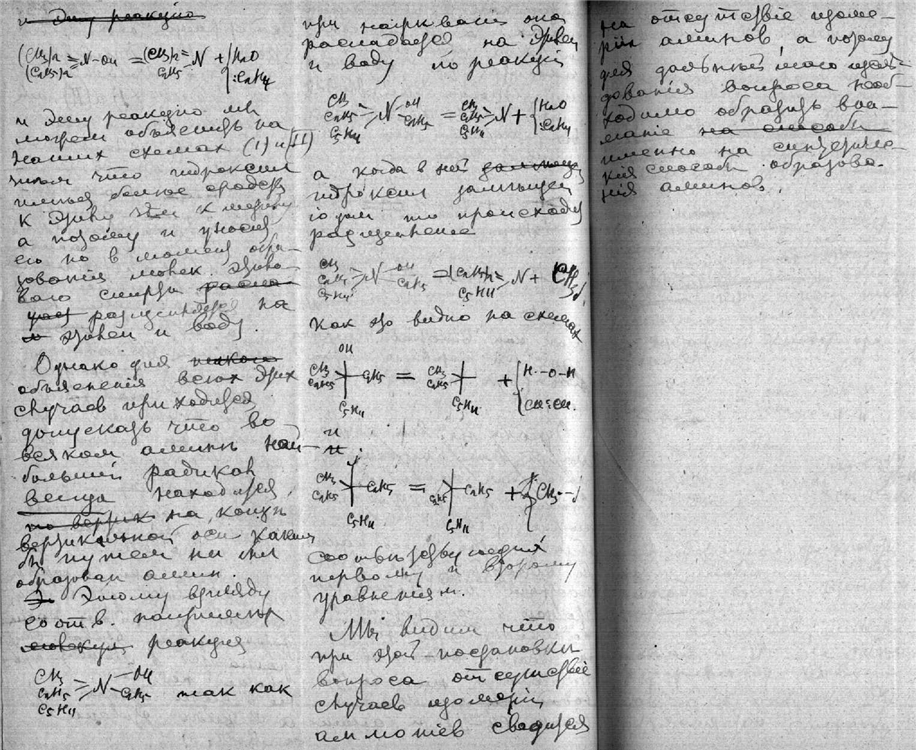 и эту реакцию
(CH3)2 (C2H5)2 N-OH = (CH3)2 C2H5 N + { H2O C2H4
и эту реакцию мы
можем объяснить на
наших схемах (I) и (II)
тем что гидроксил
больше сродства
к этилу чем к метилу
а поэтому и уносит
его но в момент обра-
зования молек. этило-
вого спирта
распадается на
этилен и воду.
Однако для
объяснения всех этих
случаев приходится
допускать что во
всяком амине наи-
больший радикал
всегда находится
на конце
вертикальной оси каким
бы путем ни был
образован амин.
Этому взгляду
соотв. например
реакция
CH3 C2H5 C5H11 N OH C2H5 так как
при нагревании она
распадается на этилен
и воду по реакции
CH3 C2H5 C5H11 N OH C2H5 = CH3 C2H5 C5H11 N + { H2O C2H4
а когда в ней
гидроксил замещен
иодом то происходит
разложение
CH3 C2H5 C5H11 N OH C2H5 = (C2H5)2 C5H11 N + CH3J
как это видно на схемах
OH
CH3 C2H5 C2H5 = CH3 C2H5 + { H-O-H
C5H11 C5H11
и
J
CH3 C2H5 C2H5 = C2H5 C2H5 + CH3-J
C5H11 C5H11
соответствующих
первому и второму
уравнениям.
Мы видим что
при этой постановке
вопроса отсутствие
случаев изомерии
аммониев сводится
на отсутствие изоме-
рии аминов, а потому
для дальнейшего иссле-
дования вопроса необ-
ходимо обратить вни-
мание на способы
именно на синтетичес-
кия способы образова-
ния аминов.